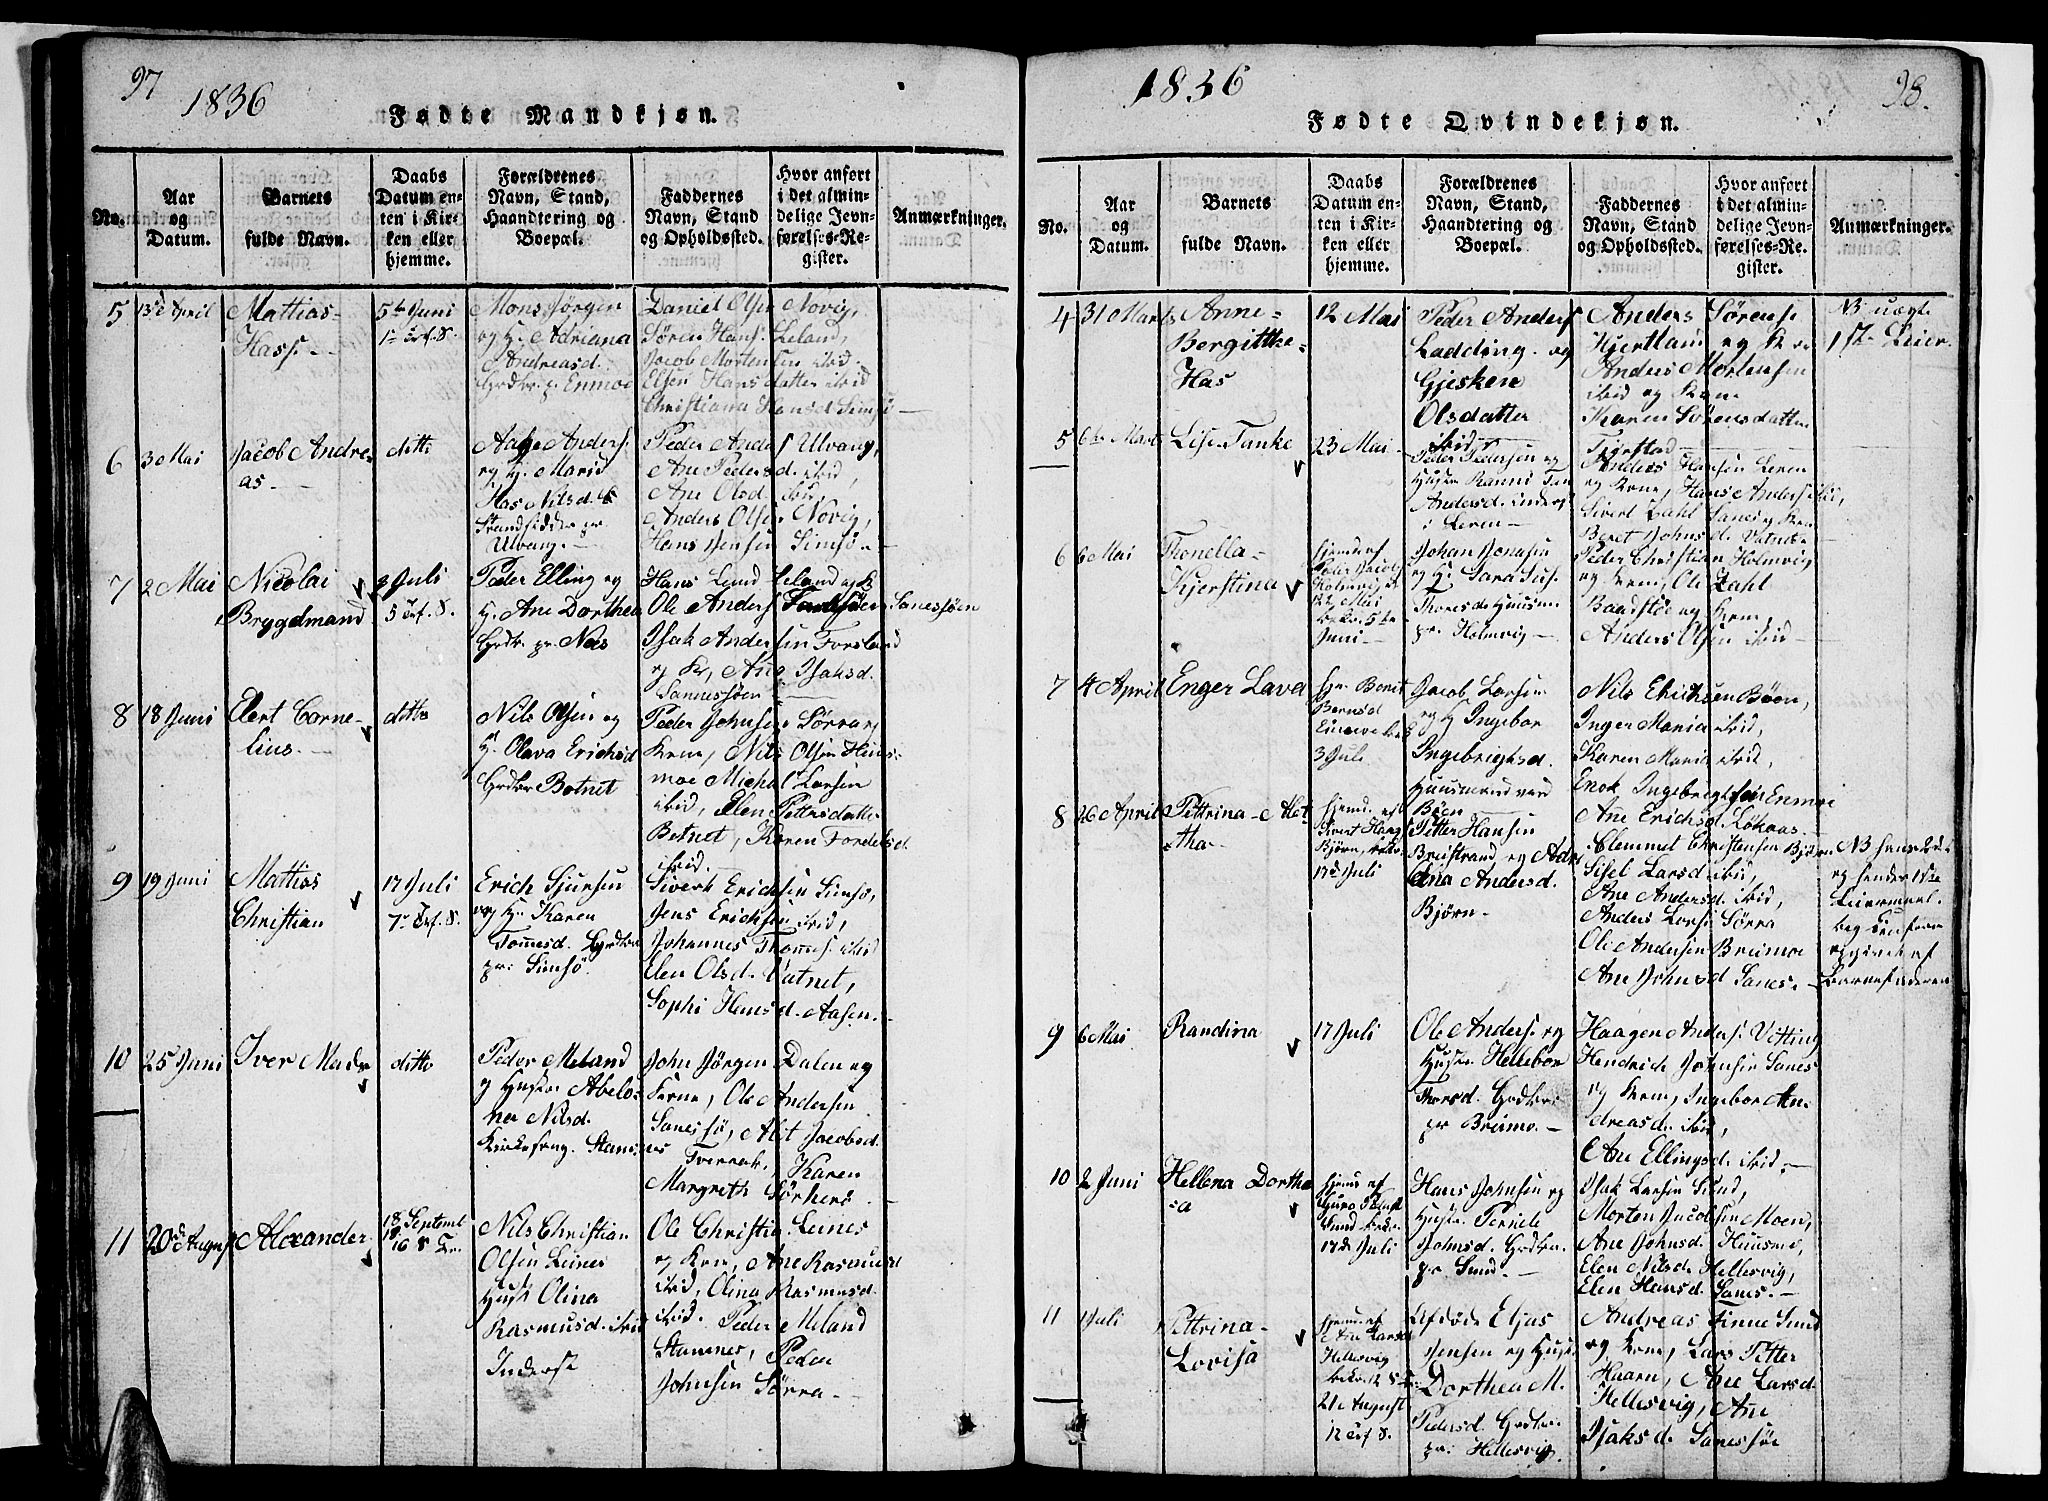 97
1836
Fødte Mandkjøn.
No.
Aar
og
Datum.
Barnets
fulde Navn.
Daabs
Datum en-
ten i Kir-
ken eller
hjemme.
Forældrenes
Navn, Stand,
Haandtering og
Boepæl.
Faddernes
Navn, Stand
og Opholdssted.
Hvor anført
i det almin-
delige Jevn-
førelses-Re-
gister.
Anmærkninger.
5
13de April
Mattias
Hass
5te Juni
Mons Jørgen
og H. Adriana
Andreasd.
Grdbr. p. Enmoe
Daniel Olsen Novig,
Søren Hans. Leland,
Jacob Mortensen ibid
Elsen Hansdatter ibid
Christiana Hansd Simsø
6
3 Mai
Jacob Andre-
as.
ditto
Aage Anders.
og H. Marid
Has Nilsd.
Strandsidder pr
Ulvang.
Peder Anders Ulvang,
Ane Pedersd. ibid,
Ane Olsd. ibid,
Anders Olsen Novig,
Hans Jensen Simsø
7
2 Mai
Nicolai
Brygdmand
3 Juli
5 Trf. 8.
Peder Elling og
H. Ane Dorthea
Grdbr. pr. Næs
Hans Lund Leland og K
Ole Anders
Sanessøen
Isak Andersen Forsland
og Kr, Ane Isaksd.
Sannessøen
8
18 Juni
Elert Corne-
lius.
ditto
Nils Olsen og
H. Olava Erichsd
Grdbr Botnet
Peder Johnsen Sørra og
Krne, Nils Olsen Huus-
moe Michal Larsen
ibid, Elen Pettersdatter
Botnet, Karen Tordensd.
ibid.
9
19 Juni
Mattias
Christian
17 Juli
7 Trf. 8.
Erich Sjursen
og H. Karen
Tomesd. Grdbr
pr. Simsø
Sivert Erichsen Simsø,
Jens Erichsen ibid,
Johannes Thomes. ibid
Elen Olsd. Vatnet,
Sophi Hansd. Aasen.
10
25 Juni
Iver Mads
ditto
Peder Meland
og Hustr Abelo-
ne Nilsd.
Kirkesang. Stamnes
John Jørgen Dalen og
Ferne, Ole Andersen
Sanessø, Alet Jacobsd.
Tveraae, Karen
Margreth Sørhers.
11
20de August
Alexander
18 Septemb
16 8 Tr.
Nils Christian
Olsen Leines
Hust Olina
Rasmusd. ibid
Inderst
Ole Christian Leines
og Krne, Ane Rasmusd
ibid, Olina Rasmusd.
ibid. Peder Meland
Stamnes, Peder
Johnsen Sørra
1836
98.
Fødte Qvindekjøn.
No.
Aar
og
Datum.
Barnets
fulde Navn.
Daabs
Datum en-
ten i Kir-
ken eller
hjemme.
Forældrenes
Navn, Stand,
Haandtering og
Boepæl.
Faddernes
Navn, Stand
og Opholdssted.
Hvor anført
i det almin-
delige Jevn-
førelses-Re-
gister.
Anmærkninger.
4
31 Marts
Anne
Bergitthe
Has
12 Mai
Peder Anders
Ladding og
Gjesken
Olsdatter
ibid
Anders Sørens.
Hjertland og
Anders Mortensen
ibid og Krne
Karen Sørensdatter
NB uægte
1ste Leier
5
6te Marts
Lise Tanke
23 Mai
Peder Pedersen og
Hustr Ranni
Andersd. inders
i Leren
Anders Hansen Leren
og Krne, Hans Anders ibid,
Sivert Zahl Sanes og Krne
Beret Johnsd. Vatnet
6
6 Mai
Thonella
Kjerstina
hjemdøbt af
Peder Jacobs
Holmvig
22 Mai
bekr. 5te
Juni
Johan Jonasen
og H. Sara
Thoresd Huusm.
pr. Holmvig
Peder Christian Holmvig
og Krne, Ole Zahl
Baadstøe og Krne,
Anders Olsen ibid
7
4 April
Enger Lava
hj. Berit
Bernsd
3 Juli
Jacob Larsen
og H Ingebor
Ingebrigtsd.
Huusmand ved
Bøen
Nils Erichsen Bøen,
Inger Maria ibid,
Karen Marie ibid,
Enok Ingebrigtsen Enmoe
Ane Erichsd. Løkaas
8
26 April
Pettrina Alet-
tha
hjemd. af
Sivert Hans
Bjørn, bekr.
17de Juli
Petter Hansen
Breistrand og Adri
ana Andersd.
Bjørn.
Clemmet Christensen Bjørn
Sisel Larsd. ibid,
Ane Andersd. ibid,
Anders Lars. Sørra
Ole Andersen Breimoe
Ane Johnsd Sanes.
NB
og hendes 1ste
Leiermaal.
opgivet af
Barnefaderen
9
6 Mai
Randina
17 Juli
Ole Anders. og
Hustr. Hellebor
Thorsd. Grdbr
pr Breimo
Haagen Anders. Vitting
Hendrich Johnsen Sanes
og Krne, Ingebor An-
dreasd. ibid,
Ane Ellingsd. ibid.
10
2 Juni
Hellena Dorthe
-a
hjemd af
Guro
Sund bekr.
17de Juli
Hans Johnsen og
Hustr. Pernele
Johnsd. Grdbr.
pr Sund.
Isak Larsen Sund,
Morten Jacobsen Moen,
Ane Johnsd. Huusmo,
Elen Nilsd. Hellesvig,
Elen Hansd. Sanes.
11
1 Juli
Pettrina
Lovisa
hjemd. af
Ane Larsd
Hellesvig
bekr. 12 8 Tr.
21 August
12 Trf 8.
Afdøde Elias
Jensen og Hust.
Dorthea M.
Pedersd. Grdbr.
pr. Hellesvig
Andreas Finne Sund
og Krne, Lars Petter
Haarn, Ane Larsd.
Hellesvig, Ane
Isaksd. Sanessøe